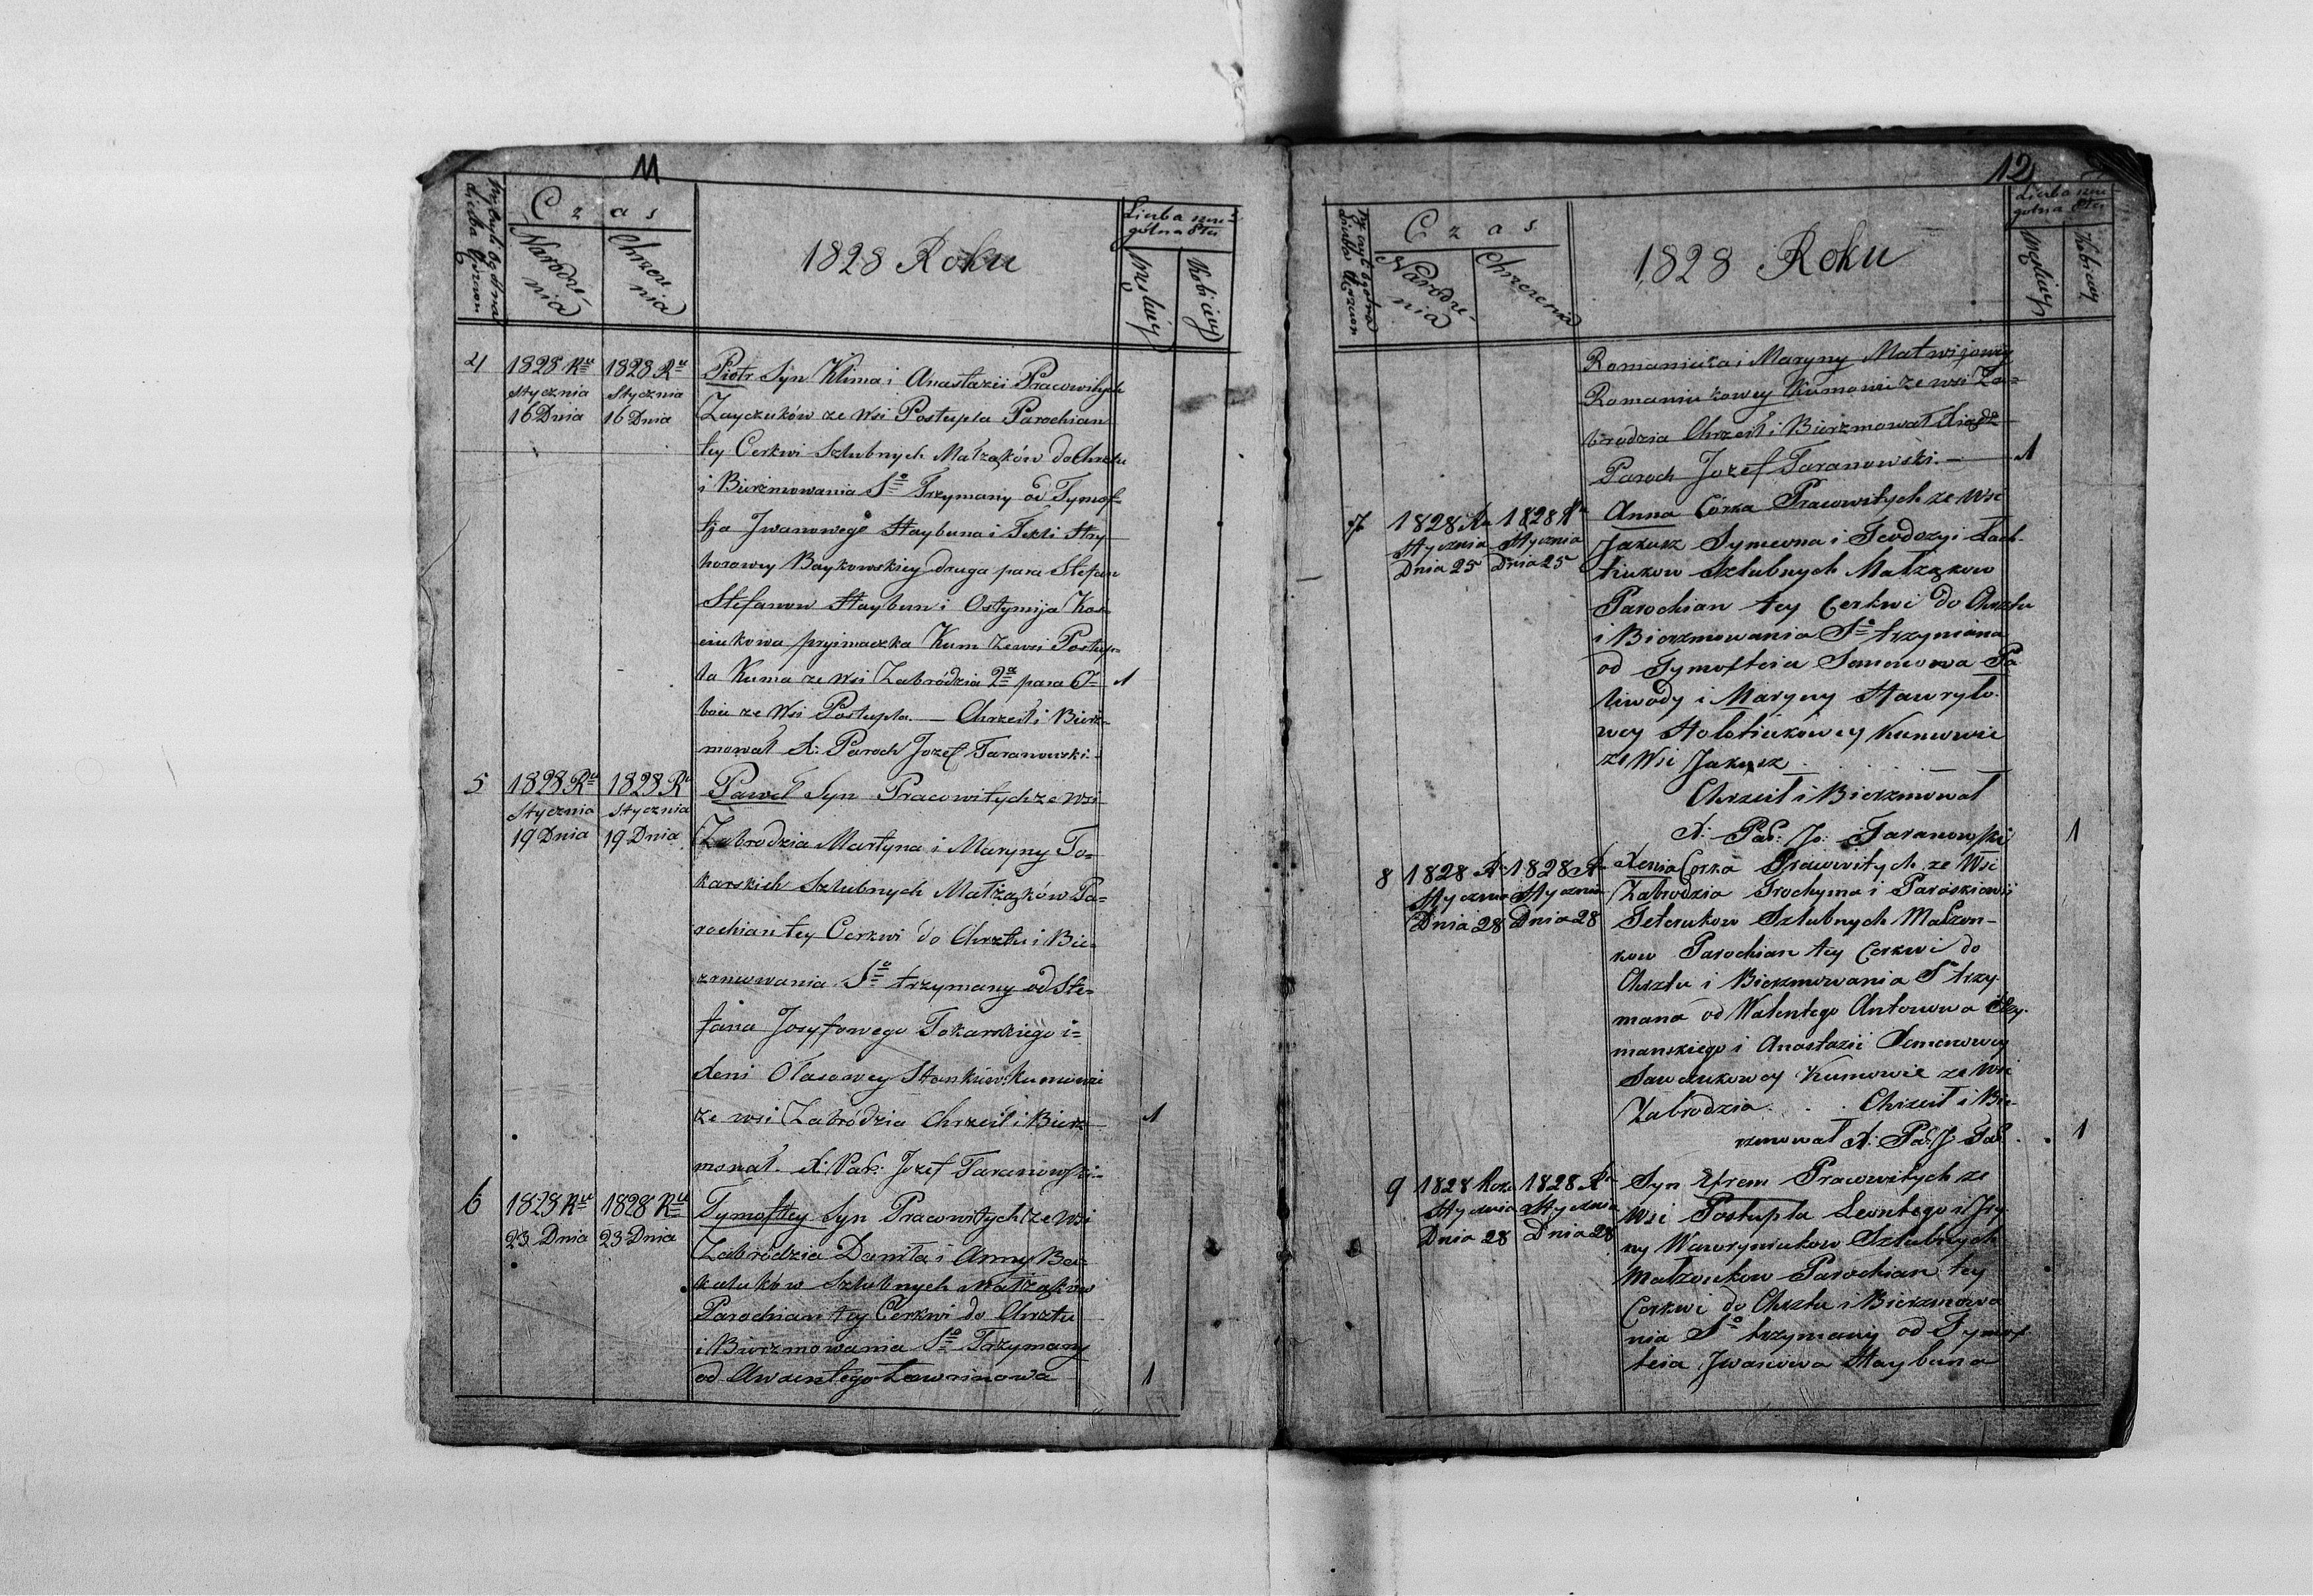 11
Czas
Narodze-
nia
Chrzeu
nia
1828 Roku
Liczba szcze-
gólna Płci
Męskiey
Kobiecey
4
1828 Ru
Stycznia
16 Dnia
1828 Ru
Stycznia
16 Dnia
Piotr Syn Klima i Anastazii Pracowitych
Zayczuków ze Wsi Postupla Parochian
tey Cerkwi Szlubnych Małząków do Chrztu
i Bierzmowania So Trzymany od Tymof-
tja Jwanowego Haybuna i Tekli Hry
horowey Baykowskiey druga para Stefan
Stefanow Haybun i Ostymija Kos-
ciukowa pryimaczka Kum ze wsi Postup-
la Kuma ze Wsi Zabródzia 2a para O-
boie ze Wsi Postupla — Chrzcił i Bierz-
mował X: Paroch Jozef Taranowski.
1
5
1828 Ru
Stycznia
19 Dnia
1828 R
Stycznia
19 Dnia
Paweł Syn Pracowitych ze wsi
Zabrodzia Martyna i Maryny To-
karskich Szlubnych Małząków Pa-
rochian tey Cerkwi do Chrztu i Bie-
rzmowania So trzymany od Ste-
fana Josyfowego Tokarskiego i
Xeni Ułasowey Kumowie
ze wsi Zabródzia Chrzcił i Bierz
mował X: Par: Jozef Taranowski
1
6
1828 Ru
23 Dnia
1828 Ru
23 Dnia
Tymoftey Syn Pracowitych ze Wsi
Zabródzia Daniła i Anny Ba-
kaluków Szlubnych Małząków
Parochian tey Cerkwi do Chrztu
i Bierzmowania So Trzymany
od Awxentego Ławrinowa
1
12
Czas
Narodze-
nia
Chrzczenia
1828 Roku
Liczba szcze
gólna Płci
Męskiey
Kobiecey
Romaniuka i Maryny Matwijowey
Romaniukowey Kumowie ze wsi Za-
brodzia Chrzcił i Bierzmował Xiądz
Paroch Jozef Taranowski. —
1
7
1828 Ru
Stycznia
Dnia 25
1828 Ru
Stycznia
Dnia 25
Anna Córka Pracowitych ze Wsi
Jakusz Symeona i Teodozyi
Szlubnych Małząkow
Parochian tey Cerkwi do Chrztu
i Bierzmowania So trzymana
od Tymofteia Semenowa Pa
liwody i Maryny Hawryło-
wey Kumowie
ze Wsi Jakusz
Chrzcił i Bierzmował
X: Par: Jo: Taranowski
1
8
1828 R
Stycznia
Dnia 28
1828 R
Stycznia
Dnia 28
Xenia Corka Pracowitych ze Wsi
Zabrodzia Trochyma i Paraskiewii
Szlubnych Małzon-
kow Parochian tey Cerkwi do
Chrztu i Bierzmowania So trzy
mana od Walentego Antonowa Szy-
manskiego i Anastazii Semenowey
Sawczukowey Kumowie ze Wsi
Zabrodzia. Chrzcił i Bie-
rzmował X: Par: J: Tar.
1
9
1828 Roku
Stycznia
Dnia 28
1828 R
Stycznia
Dnia 28
Syn Efrem Pracowitych ze
Wsi Postupla Leontego i Jry
ny Wawryniukow Szlubnych
Małzonkow Parochian tey
Cerkwi do Chrztu i Bierzmowa
nia So trzymany od Tymof
teia Jwanowa Haybuna